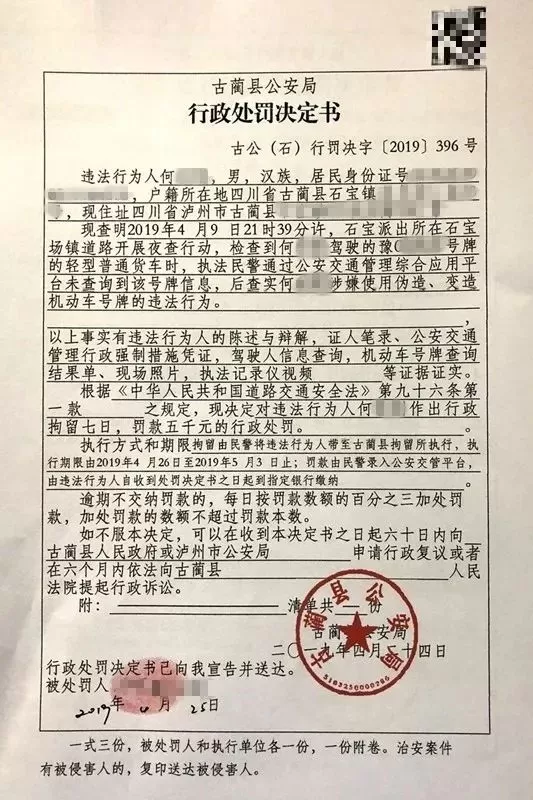 古蔺县公安局
行政处罚决定书
古公（石）行罚决字〔2019〕396 号
违法行为人何，男，汉族，居民身份证号
，户籍所在地四川省古蔺县石宝镇
，现住址四川省泸州市古蔺县
现查明2019年 4月 9日21时39分许，石宝派出所在石宝
场镇道路开展夜查行动，检查到何驾驶的豫号牌
的轻型普通货车时，执法民警通过公安交通管理综合应用平
台未查询到该号牌信息，后查实何涉嫌使用伪造、变造
机动车号牌的违法行为。
，
以上事实有违法行为人的陈述与辩解，证人笔录、公安交通
管理行政强制措施凭证，驾驶人信息查询，机动车号牌查询
结果单、现场照片，执法记录仪视频 等证据证实。
根据《中华人民共和国道路交通安全法》第九十六条第
一款 之规定，现决定对违法行为人何作出行政
拘留七日，罚款五千元的行政处罚。 。
执行方式和期限拘留由民警将违法行为人带至古蔺县拘留所执行，执
行期限由2019年4 月26日至2019年5 月3 日止；罚款由民警录入公安交管平台，
由违法行为人自收到处罚决定书之日起到指定银行缴纳 。
逾期不交纳罚款的，每日按罚款数额的百分之三加处罚
款，加处罚款的数额不超过罚款本数。
如不服本决定，可以在收到本决定书之日起六十日内向
古蔺县人民政府或泸州市公安局 申请行政复议或者
在六个月内依法向古蔺县 人民
法院提起行政诉讼。
附： 清单共 份
古蔺县公安局
古蔺县公安局
5103250000286
二〇一九年四月二十四日
行政处罚决定书已向我宣告并送达。
被处罚人
2019年 4 月 25日
一式三份，被处罚人和执行单位各一份，一份附卷。治安案件
有被侵害人的，复印送达被侵害人。